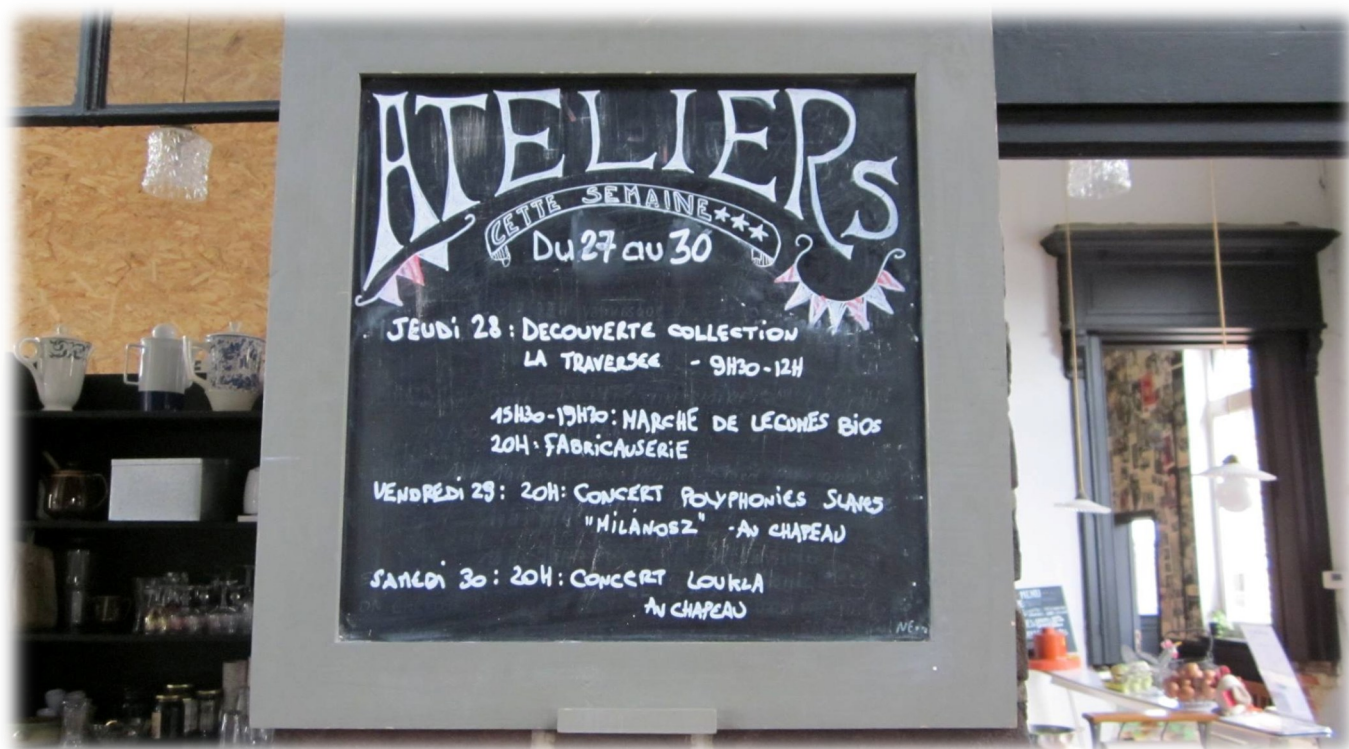 ATELIERS
CETTE SEMAINE ***
Du 27 au 30
JEUDi 28 : DECOUVERTE COLLECTION
LA TRAVERSEE - 9H30-12H
15H30-19H30 : MARCHE DE LEGUMES BiOS
20H : FABRiCAUSERiE
VENDREDi 29 : 20H : CONCERT POLYPHONiES SLAVES
"MiLANOSZ" - AU CHAPEAU
SAMEDi 30 : 20H : CONCERT LOUKLA
AU CHAPEAU
MENU